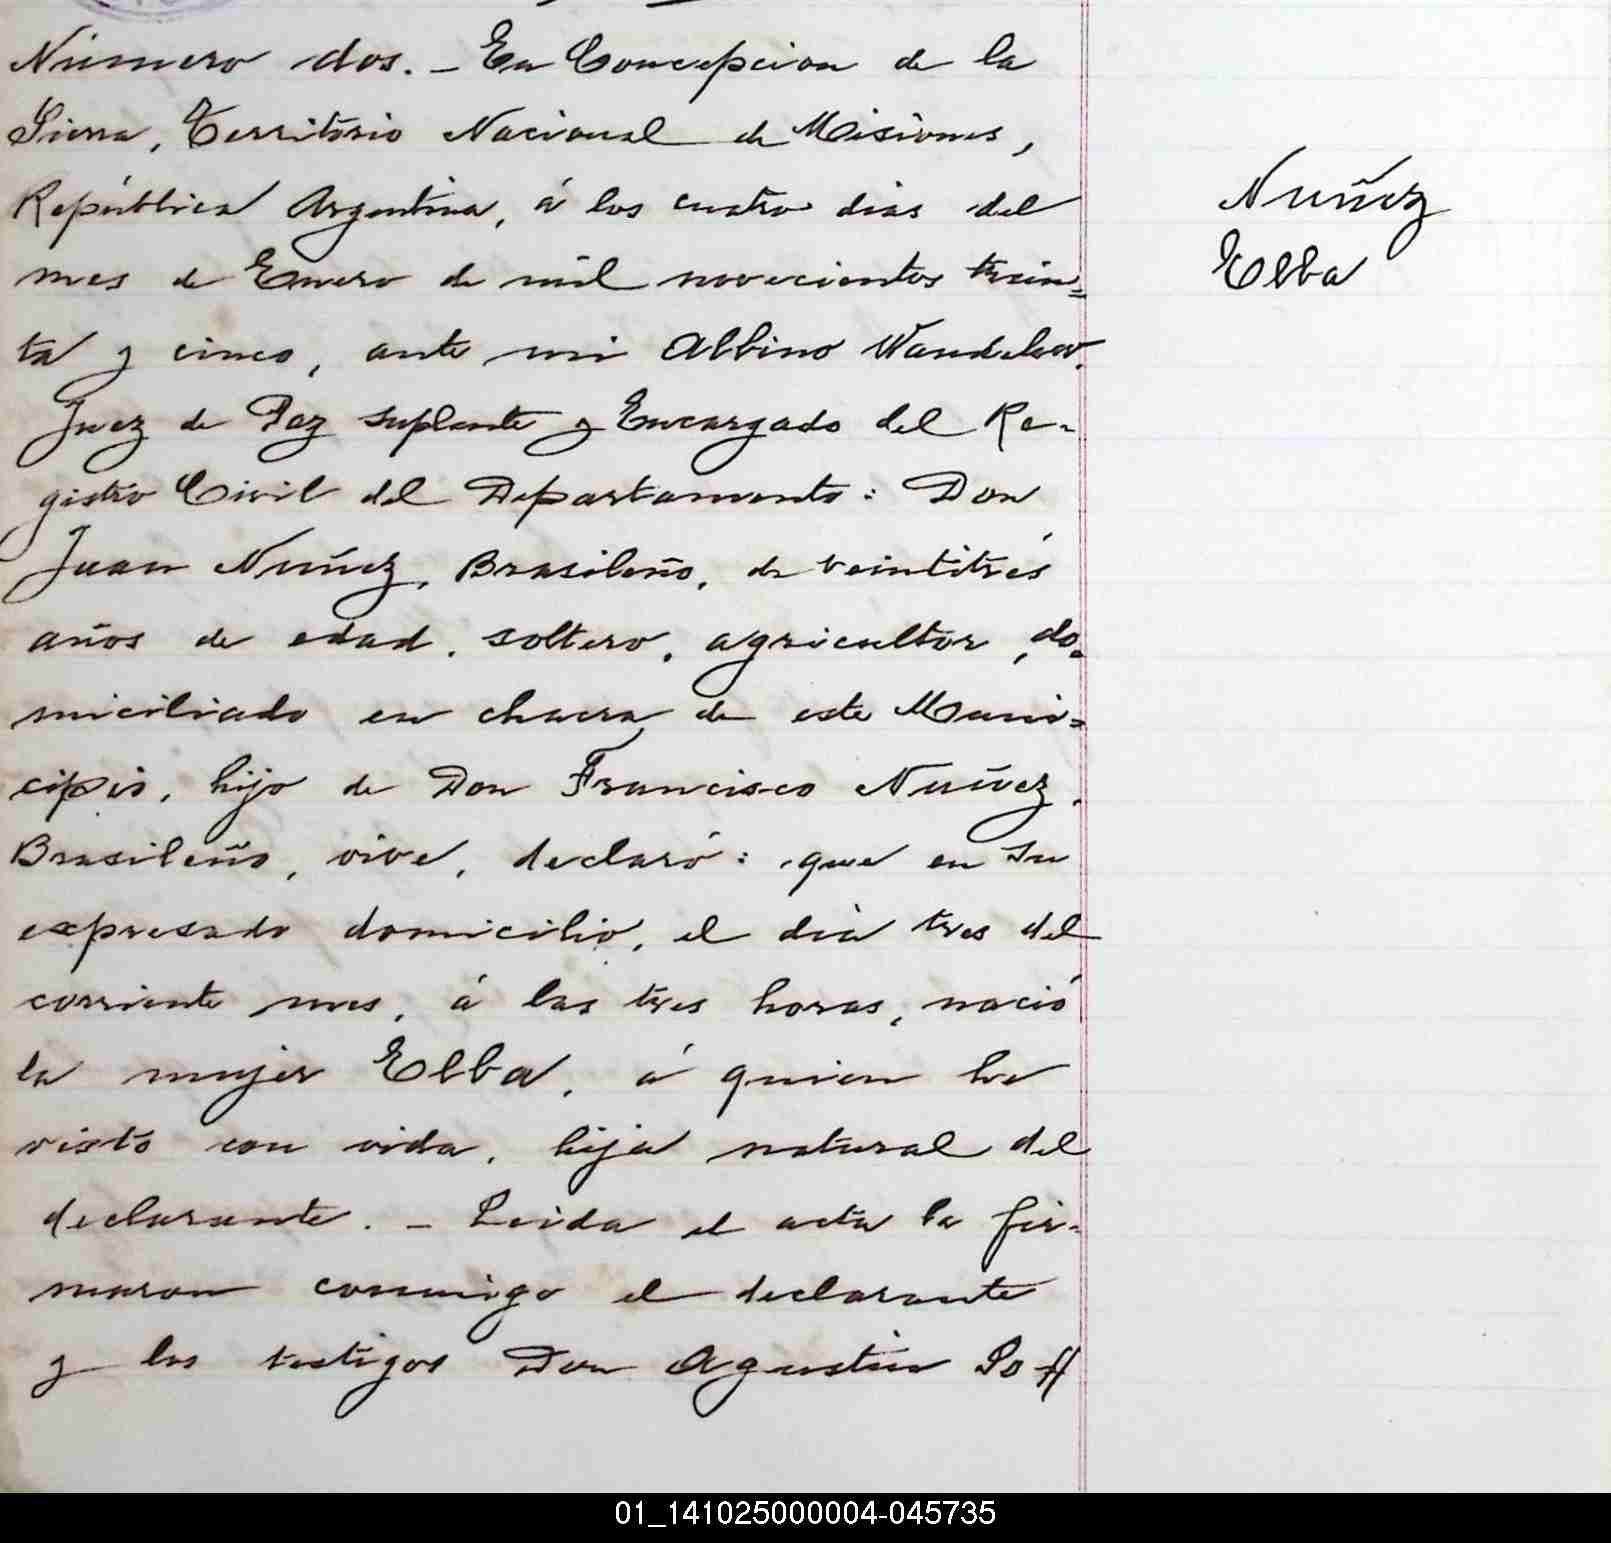 Número dos. - En Concepcion de la
Sierra, Territorio Nacional de Misiones,
República Argentina, á los cuatro dias del
mes de Enero de mil novecientos trein=
ta y cinco, ante mi Albino
Juez de Paz suplente y Encargado del Re-
gistro Civil del Departamento: Don
Juan Nuñez, Brasileño, de veintitrés
años de edad, soltero, agricultor, do-
miciliado en chacra de este Muni=
cipio, hijo de Don Francisco Nuñez,
Brasileño, vive, declaró: que en su
expresado domicilio, el dia tres del
corriente mes, á las tres horas, nació
la mujer Elba, á quien he
visto con vida, hija natural del
declarante. - Leida el acta la fir-
maron conmigo el declarante
y los testigos Don Agustin
Nuñez
Elba
01_141025000004-045735